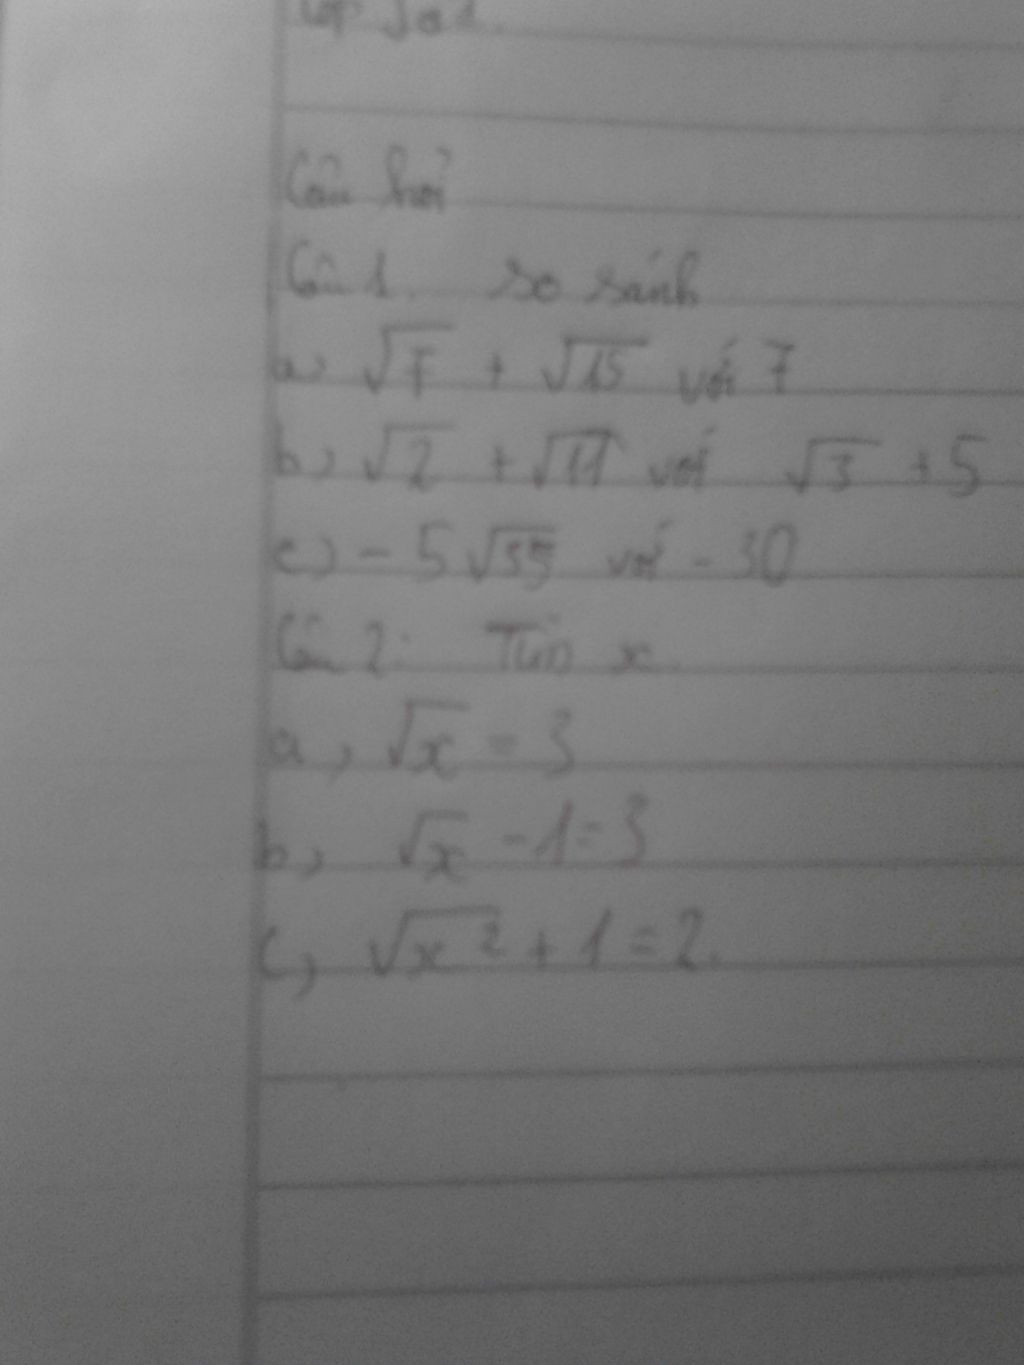 Câu hỏi
Câu 1. so sánh
a, √7 + √15 với 7
b) √2 + √11 với √3 + 5
c) - 5√35 với - 30
Câu 2: Tìm x
a, √x = 3
b, √x - 1 = 3
c, √x² + 1 = 2.